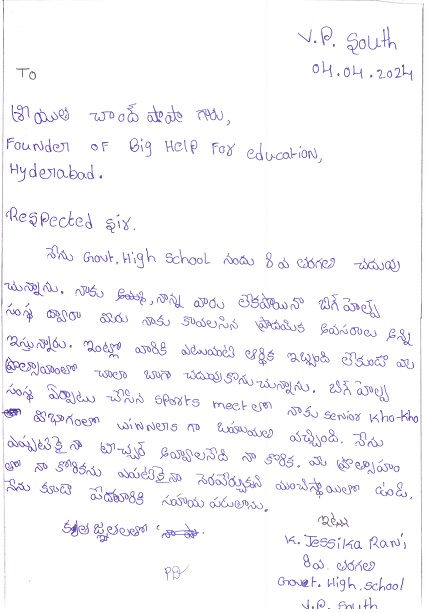 V.P. South
04.04.2024
TO
శ్రీయుత చాంద్ పాషా గారు,
Founder of Big Help For education,
Hyderabad.
Respected sir.
నేను Govt. High School నందు 8 వ తరగతి చదువు
చున్నాను. నాకు అమ్మ, నాన్న వారు లేకపోయినా బిగ్ హెల్ప్
సంస్థ ద్వారా మీరు నాకు కావలసిన ప్రాథమిక అవసరాలు అన్ని
ఇస్తున్నారు. ఇంట్లో వారికి ఎటువంటి ఆర్థిక ఇబ్బంది లేకుండా మీ
ప్రోత్సాహంతో చాలా బాగా చదువుకొను చున్నాను. బిగ్ హెల్ప్
సంస్థ ఏర్పాటు చేసిన sports meet లో నాకు senior kho-kho
విభాగంలో winners గా బహుమతి వచ్చింది. నేను
ఎప్పటికైనా టీచర్ అవ్వాలనేది నా కోరిక. మీ ప్రోత్సాహం
తో నా కోరికను ఎప్పటికైనా నెరవేర్చుకుని మంచిస్థాయిలో ఉండి.
నేను కూడా పేదవారికి సహాయ పడుతాను.
కృతజ్ఞతలతో
ఇట్లు
K. Jessika Rani,
8వ తరగతి
Govt. High. school
V.P. South